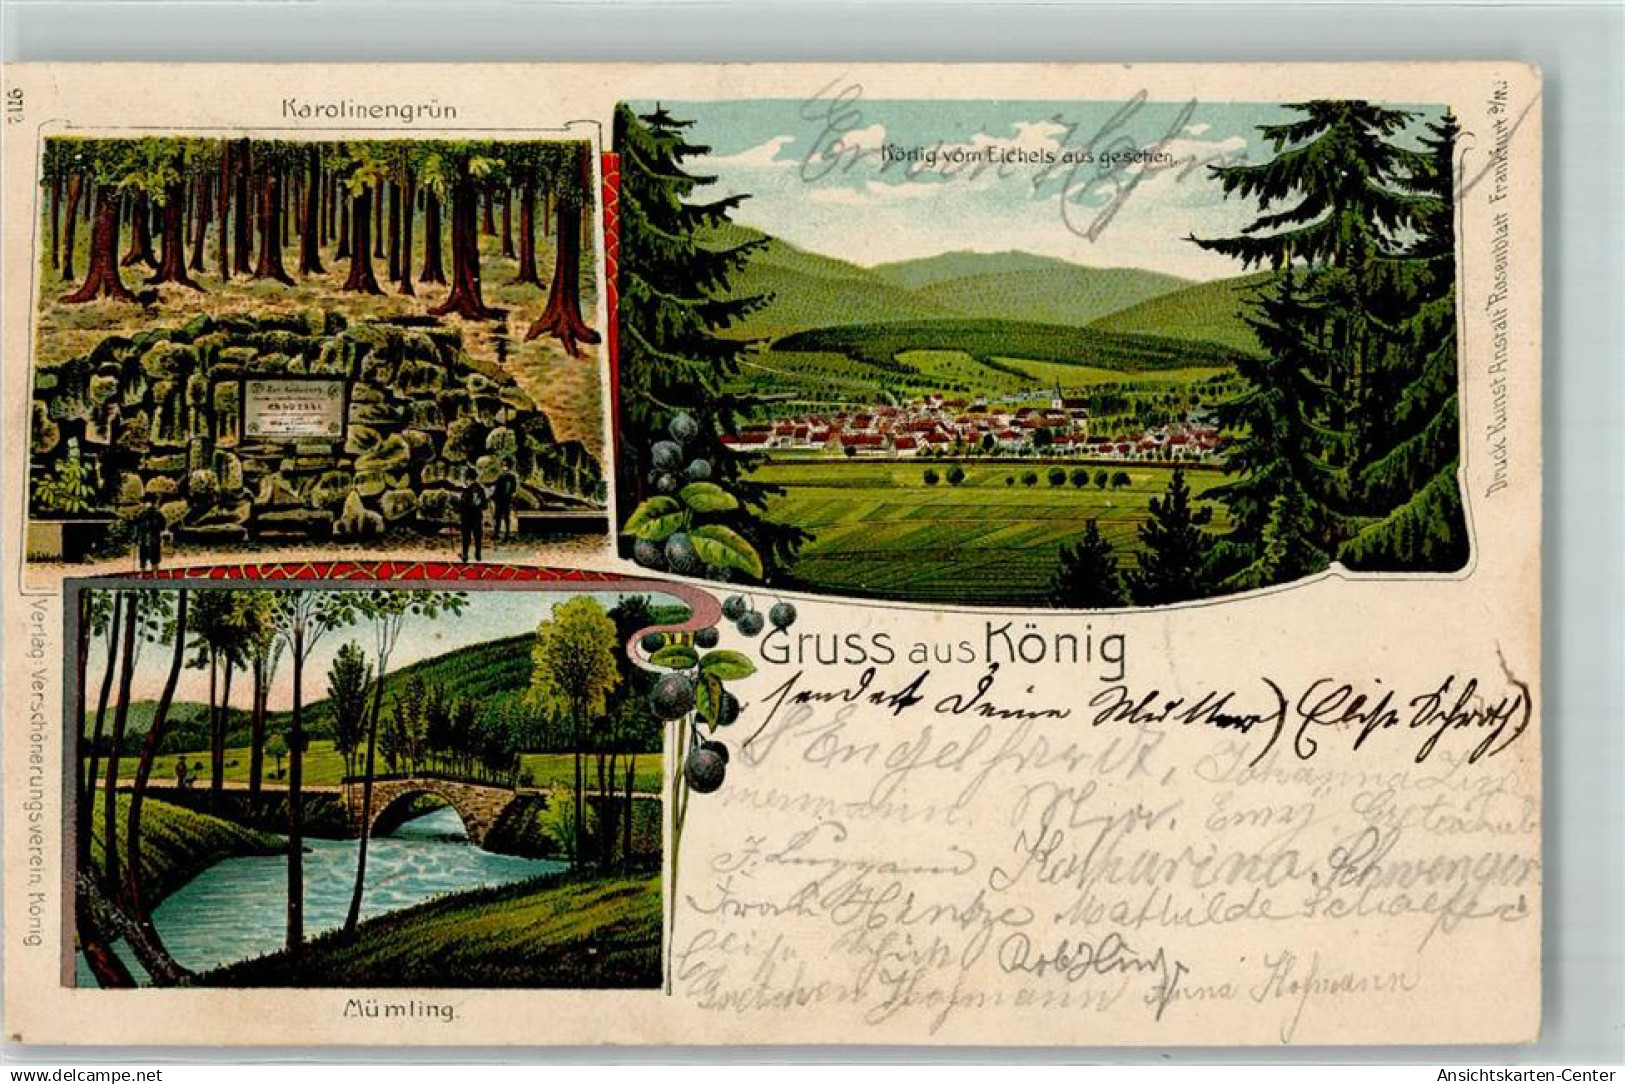 9712
Karolinengrün
König vom Eichels aus gesehen.
Erwin Hofm
Druck Kunst Anstalt Rosenblatt Frankfurt a/M.
Verlag: Verschönerungsverein, König
Mümling.
Gruss aus König
sendet Deine Mutter) (Elise Schroth)
Engelhardt, Johanna Zim
mermann. Emy
Katharina Schwenger
Frau Hintze Mathilde Schaefer
Elise Schütz
Gretchen Hofmann Anna Hofmann
www.ansichtskartenversand.com
Ansichtskarten-Center